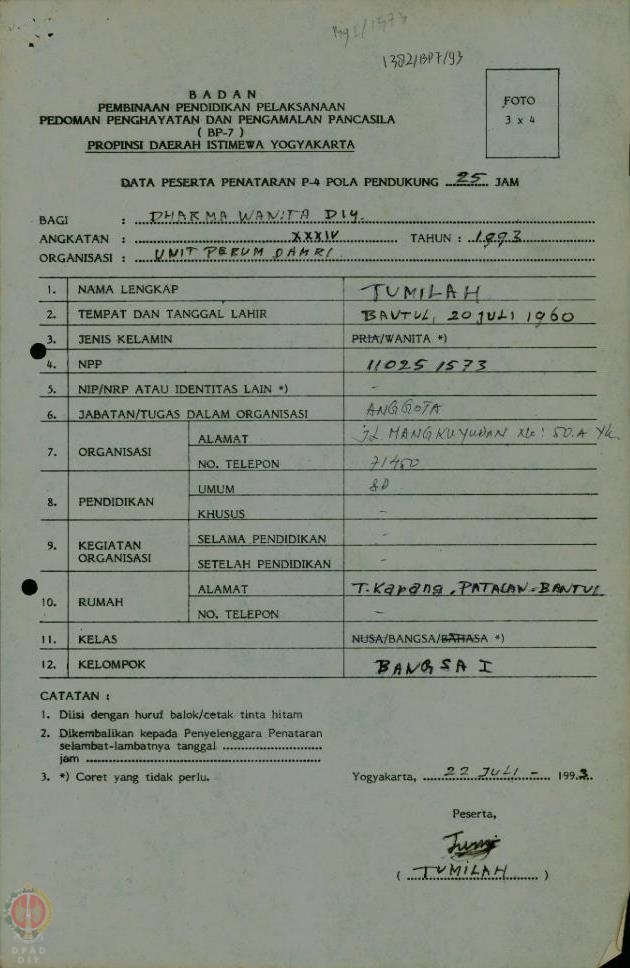 1382/BP7/93
BADAN
PEMBINAAN PENDIDIKAN PELAKSANAAN
PEDOMAN PENGHAYATAN DAN PENGAMALAN PANCASILA
( BP-7 )
PROPINSI DAERAH ISTIMEWA YOGYAKARTA
FOTO
3 x 4
DATA PESERTA PENATARAN P-4 POLA PENDUKUNG 25 JAM
BAGI : DHARMA WANITA DIY
ANGKATAN : XXXIV TAHUN : 1993
ORGANISASI : UNIT PERUM DAMRI
1. NAMA LENGKAP TUMILAH
2. TEMPAT DAN TANGGAL LAHIR BANTUL, 20 JULI 1960
3. JENIS KELAMIN PRIA/WANITA *)
4. NPP 11025 1573
5. NIP/NRP ATAU IDENTITAS LAIN *) -
6. JABATAN/TUGAS DALAM ORGANISASI ANGGOTA
7. ORGANISASI ALAMAT JL. MANGKUYUDAN No: 50.A YK.
NO. TELEPON 71450
8. PENDIDIKAN UMUM SD
KHUSUS -
9. KEGIATAN ORGANISASI SELAMA PENDIDIKAN -
SETELAH PENDIDIKAN -
10. RUMAH ALAMAT T. Kapang, PATALAN - BANTUL
NO. TELEPON -
11. KELAS NUSA/BANGSA/BAHASA *)
12. KELOMPOK BANGSA I
CATATAN :
1. Diisi dengan huruf balok/cetak tinta hitam
2. Dikembalikan kepada Penyelenggara Penataran
selambat-lambatnya tanggal ..........
jam ..........
3. *) Coret yang tidak perlu.
Yogyakarta, 22 JULI - 1993.
Peserta,
Tumi
( TUMILAH )
DPAD
DIY